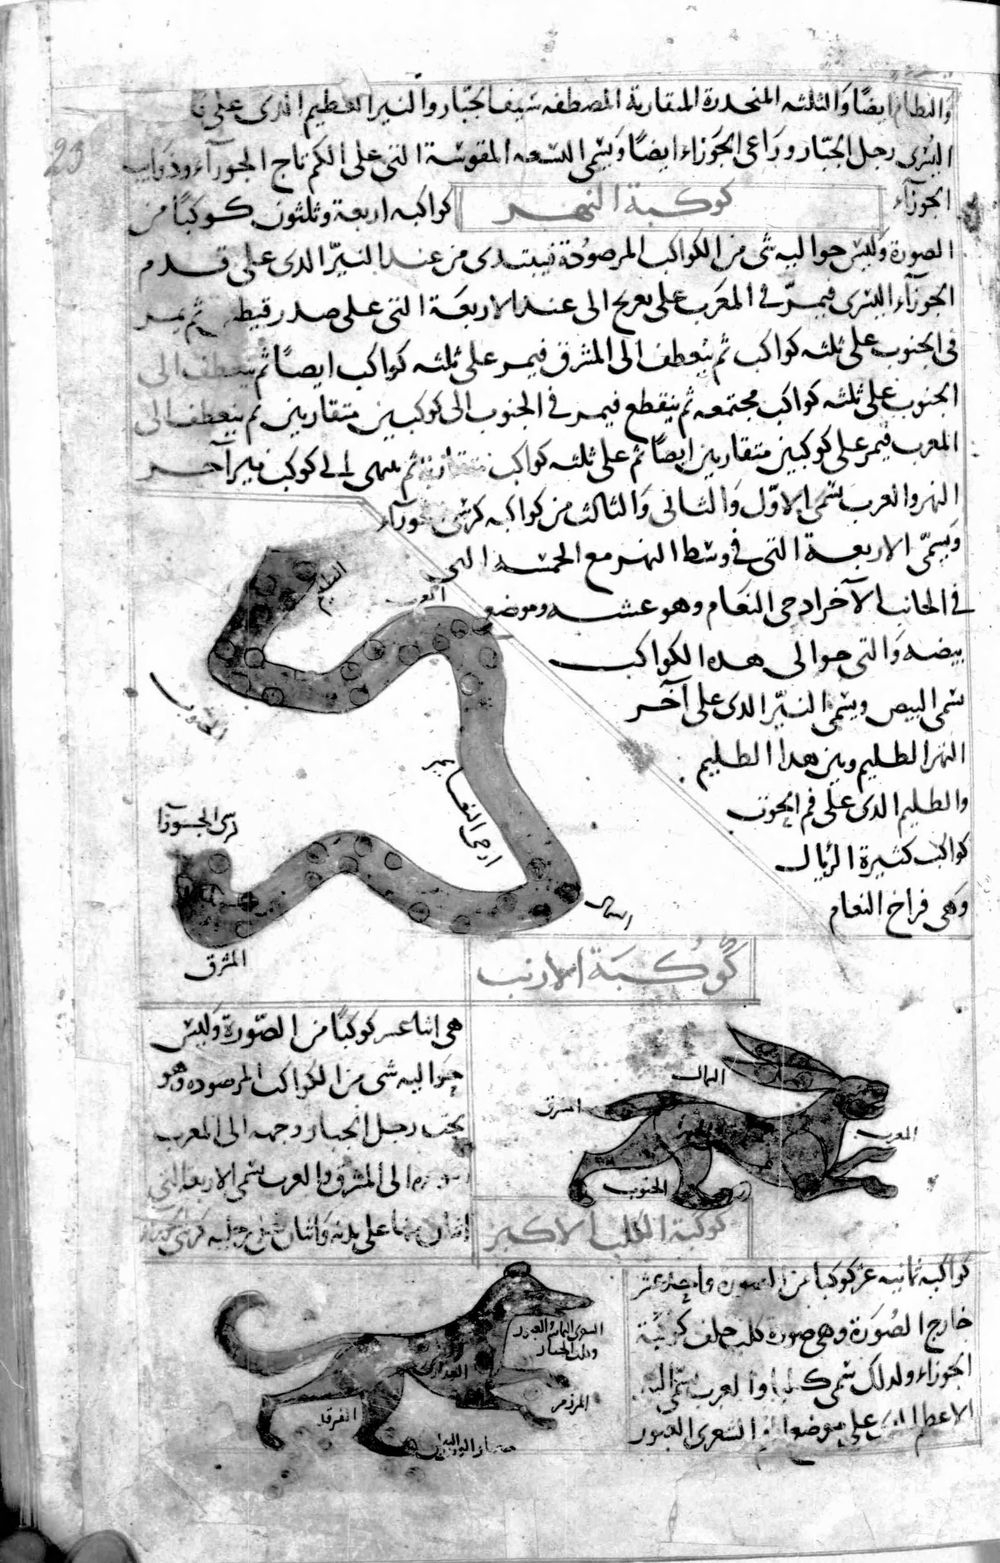 والنطاق ايضا والثلثه المنحدرة المتقاربة المصطفه سيف الجبار والنير العظيم الذى على
اليسرى رجل الجبار وراعى الجوزاء ايضا ويسمى التسعه المقوسة التى على الكم تاج الجوزآء وذوايب
الجوزآء
كوكبة النهر
كواكبه اربعة وثلثون كوكبا من
الصورة وليس حواليه شى من الكواكب المرصودة فيبتدى من عند النير الذى على قدم
الجوزآء اليسرى فيمر فى المغرب على تعريج الى عند الاربعة التى على صدر قيطس ثم يمر
فى الجنوب على ثلثه كواكب ثم ينعطف الى المشرق فيمر على ثلثه كواكب ايضا ثم ينعطف الى
الجنوب على ثلثه كواكب مجتمعه ثم ينقطع فيمر فى الجنوب الى كوكبين متقاربين ثم ينعطف الى
المغرب فيمر على كوكبين متقاربين ايضا ثم على ثلثه كواكب متقاربة ثم ينتهى الى كوكب نير آخر
النهر والعرب يسمى الاول والثانى والثالث من كواكبه كرسى الجوزآء
ويسمى الاربعة التى فى وسط النهر مع الخمسه التى
فى الجانب الآخر ادحى النعام وهو عشه وموضع
بيضه والتى حوالى هذه الكواكب
يسمى البيض ويسمى النير الذى على آخر
النهر الظليم وبين هذا الظليم
والظليم الذى على فم الحوت
كواكب كثيرة الريال
وهى فراخ النعام
الظليم
المغرب
الجنوب
ادحى النعايم
كرسى الجوزا
الشمال
المشرق
كوكبة الارنب
هى اثنا عشر كوكبا من الصورة وليس
حواليه شى من الكواكب المرصوده وهو
تحت رجل الجبار وجهه الى المغرب
الى المشرق والعرب يسمى الاربعة التى
اثنان منها على بدنه واثنان على رجليه كرسى
الشمال
المشرق
المغرب
الجنوب
كوكبة الكلب الاكبر
كواكبه ثمانيه عشر كوكبا من الصورة واحد عشر
خارج الصورة وهى صورة كلب خلف كوكبة
الجوزاء ولذلك سمى كلبا والعرب يسمى
الاعظم الذى على موضع الفم الشعرى العبور
الشعرى اليمانيه العبور
وكلب الجبار
العذارى
المرزم
الفرقد